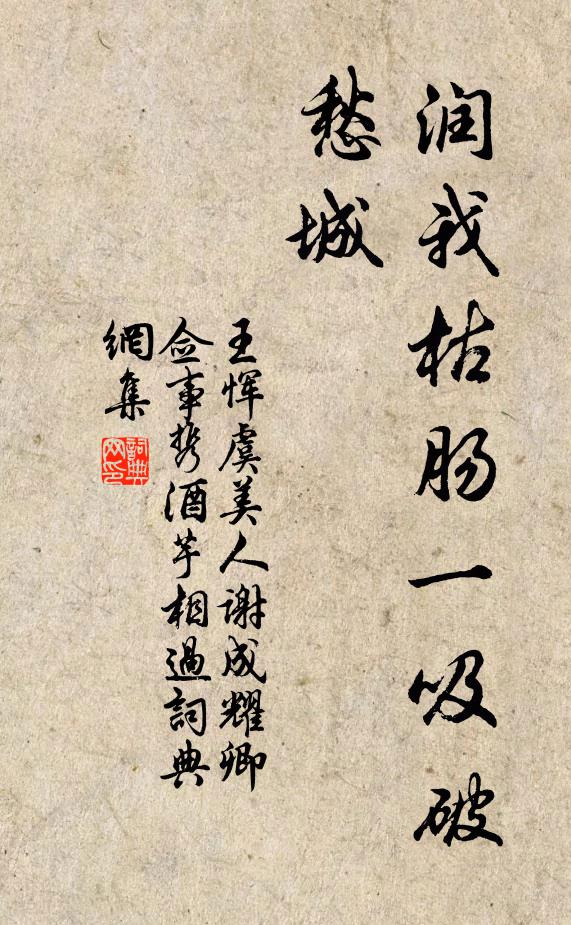 润我枯肠一吸破
愁城
王恽虞美人谢成耀卿
佥事携酒芋相過詞典
網集
詞典
网印